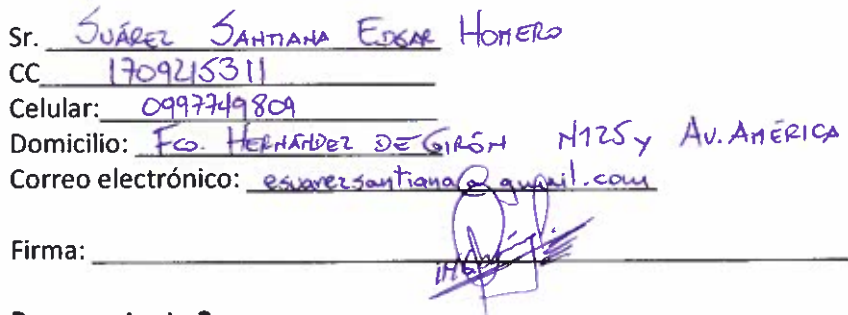 Sr. SUÁREZ SANTIANA EDGAR HOMERO
CC 1709215311
Celular: 0997749809
Domicilio: FCO. HERNÁNDEZ DE GIRÓN N125 y AV. AMÉRICA
Correo electrónico: esuarezsantiana@gmail.com
Firma: